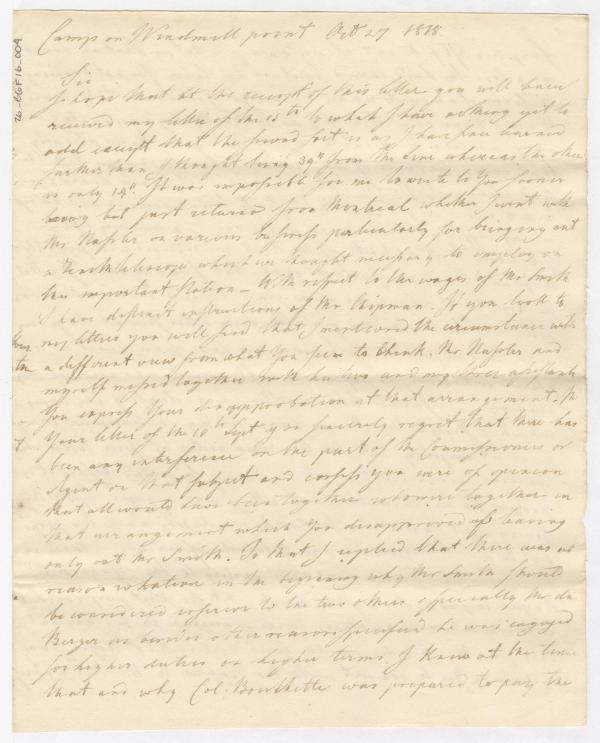 76-GGF16-004
Camp on Windmill point Oct 27 1818.
Sir
I hope that at the receipt of this letter you will have
received my letter of the 15th to what I have nothing yet to
add except that the second fort is as I have since learned
further than I thought being 39" from the line whereas the other
is only 14". It was impossible for me to write to You sooner
having but just returned from Montreal whither I went with
Mr Nassler on various business particularly for bringing out
a Zenith telescope which we thought necessary to employ on
this important Station — With respect to the wages of Mr Smith
I have distinct instructions of Mr Chipman. If you look to
my letters you will find that I mentioned the circumstance with
a different view from what You seem to think. Mr Nassler and
myself messed together with his two and my assistants
You express Your disapprobation at that arrangement. In
Your letter of the 10th Sept you sincerely regret that there has
been any interference on the part of the Commissioners or
Agent on that subject and confess you were of opinion
that all would have been together who were together in
that arrangement which you disapproved of leaving
only out Mr Smith. To that I replied that there was no
reason whatever in the beginning why Mr Smith should
be considered inferior to the two others especially Mr de
Berger as besides other reasons specified he was engaged
for higher duties on higher terms. I knew at the time
that and why Col. Bouchette was prepared to pay the